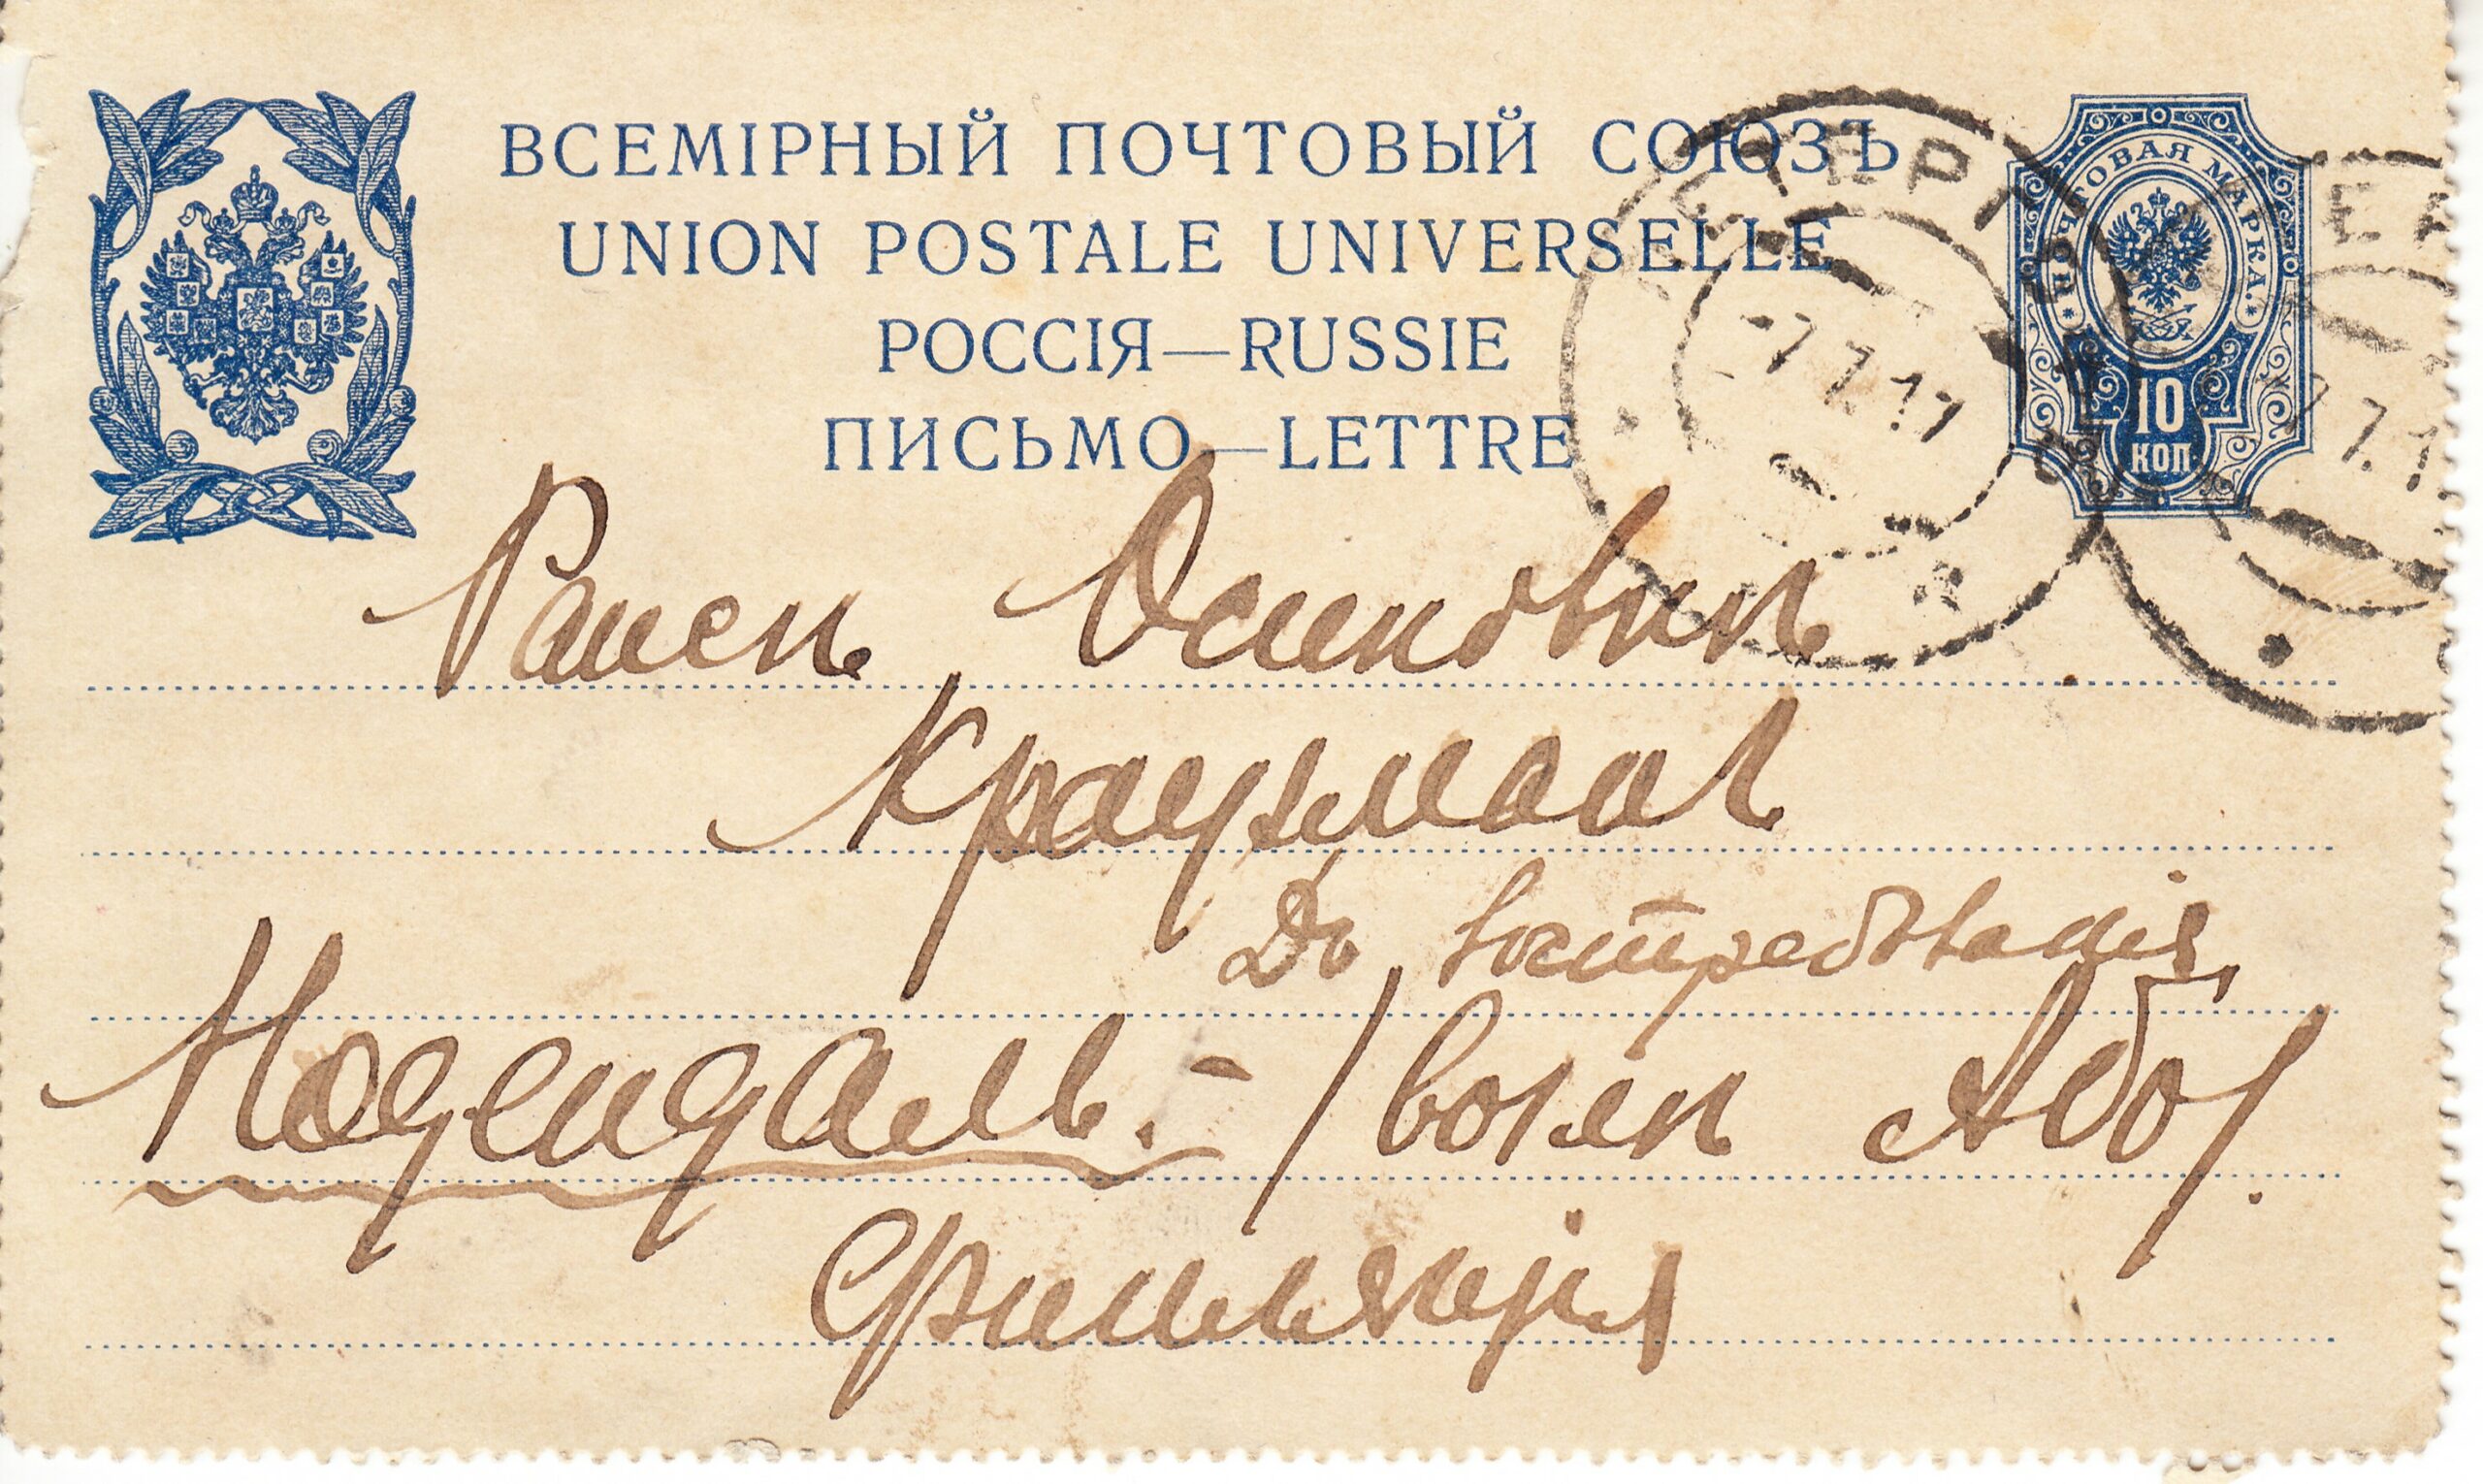 ВСЕМІРНЫЙ ПОЧТОВЫЙ СОЮЗЪ
UNION POSTALE UNIVERSELLE
РОССІЯ—RUSSIE
ПИСЬМО—LETTRE
ПОЧТОВАЯ МАРКА.
10
КОП
-7.7.11
7.7.1
Осиповнѣ
До востребованія
Нодендаль. - /возлѣ Або/.
Финляндія